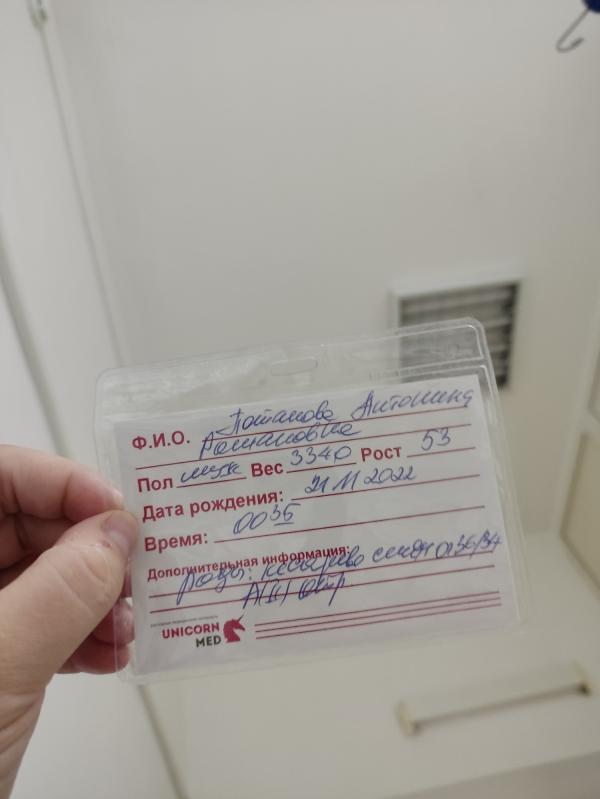 Ф.И.О. Потапова Антонина
Романовна
Пол муж Вес 3340 Рост 53
Дата рождения: 21 11 2022
Время: 00 35
Дополнительная информация:
роды: кесарево
A(II)
UNICORN
MED